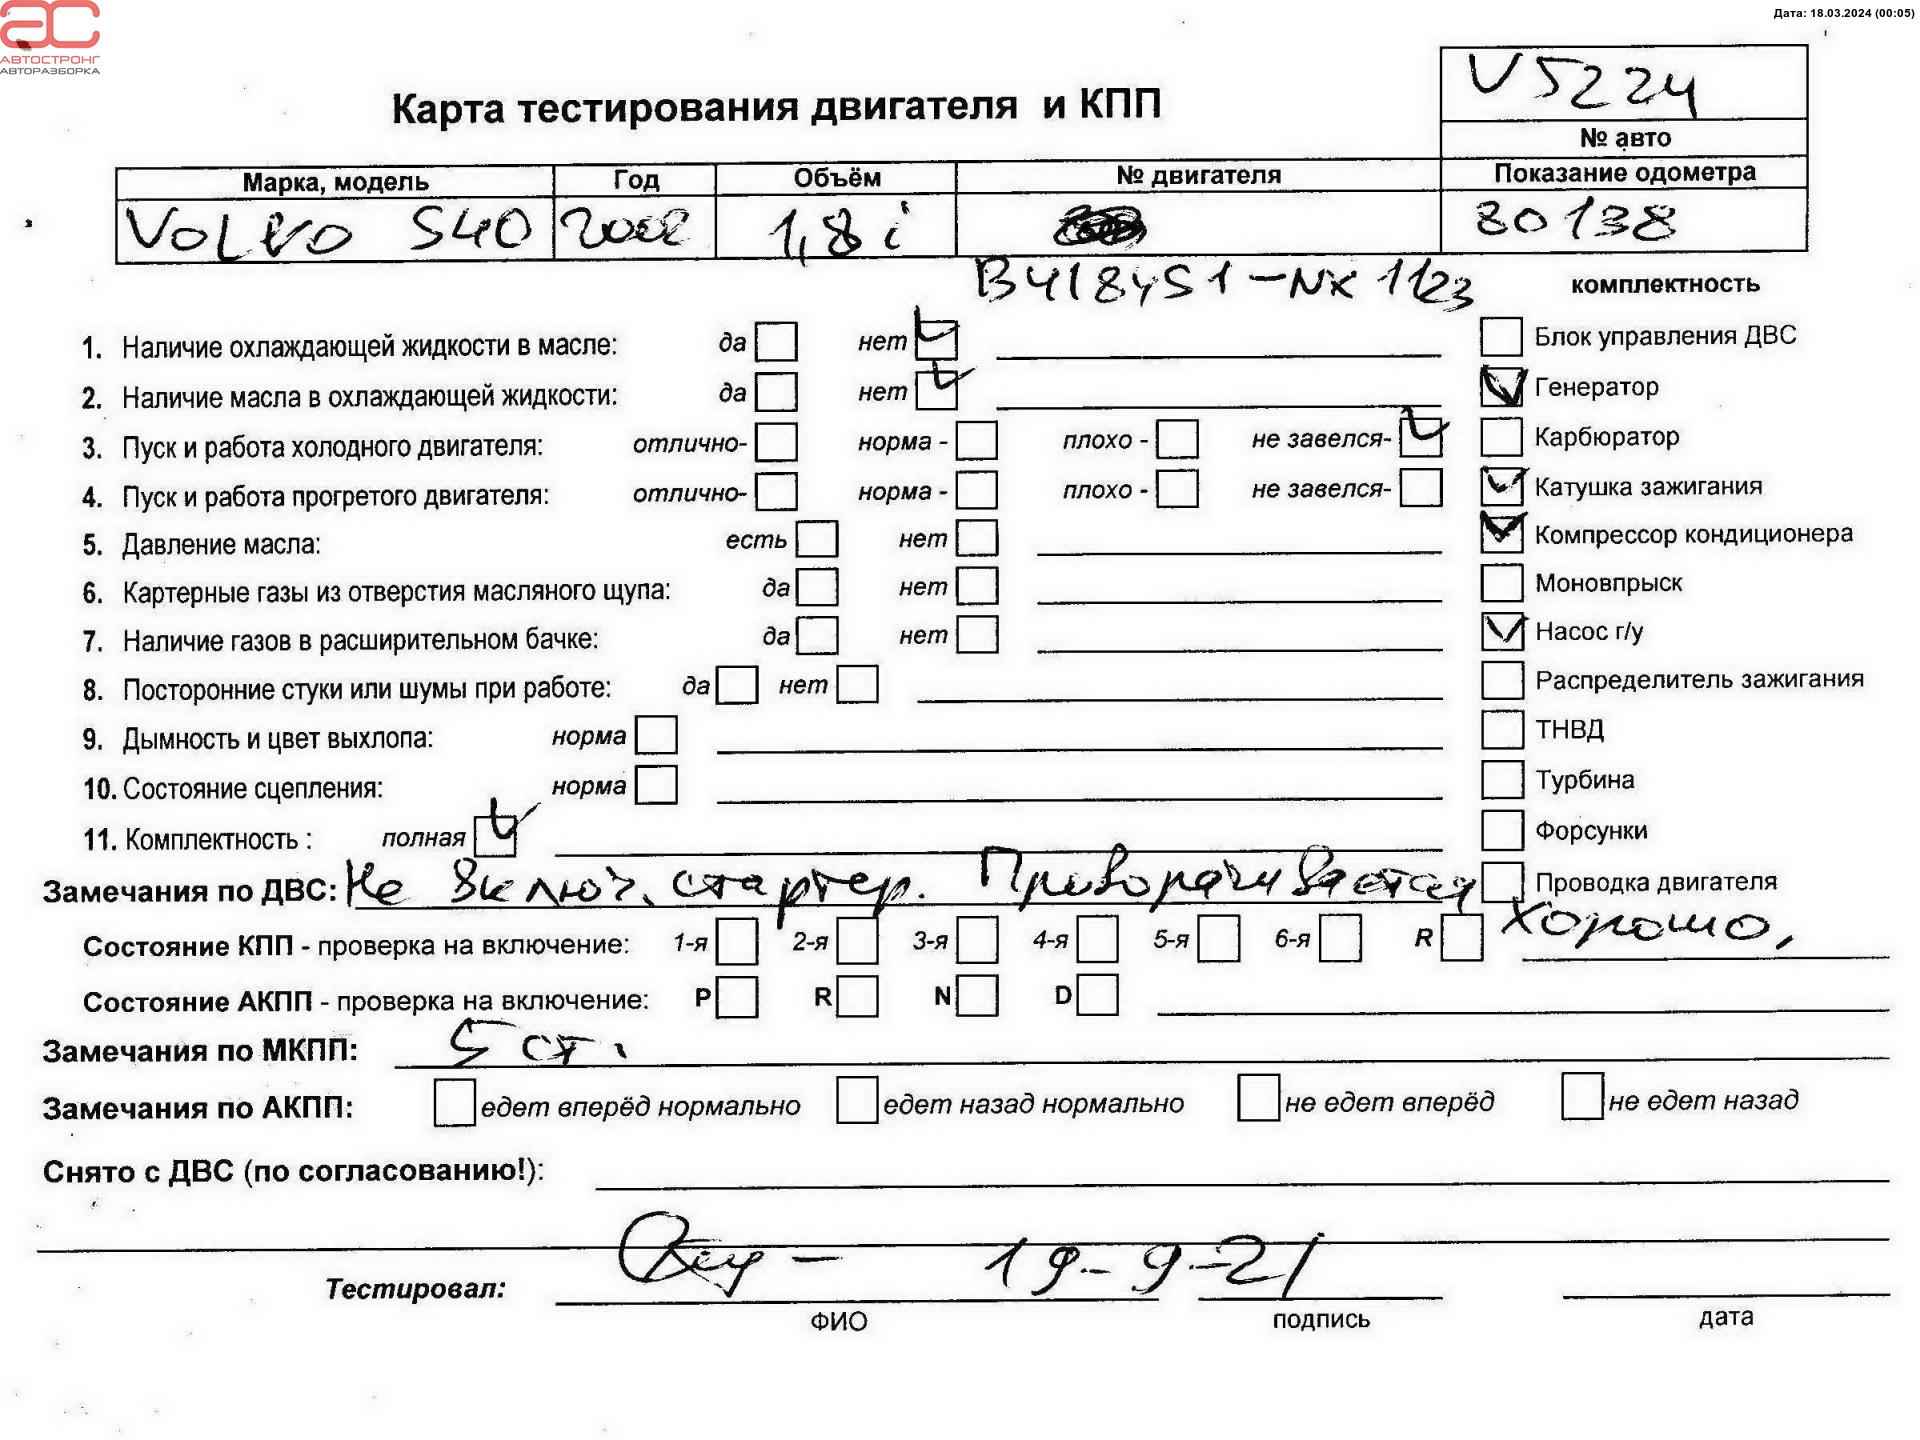 Дата: 18.03.2024 (00:05)
АВТОСТРОНГ
АВТОРАЗБОРКА
V5224
Карта тестирования двигателя и КПП
№ авто
Марка, модель Год Объём № двигателя Показание одометра
VOLVO S40 2002 1,8 i 80138
B4184S1-NX 1123 комплектность
1. Наличие охлаждающей жидкости в масле: да нет Блок управления ДВС
2. Наличие масла в охлаждающей жидкости: да нет Генератор
3. Пуск и работа холодного двигателя: отлично- норма - плохо - не завелся- Карбюратор
4. Пуск и работа прогретого двигателя: отлично- норма - плохо - не завелся- Катушка зажигания
5. Давление масла: есть нет Компрессор кондиционера
6. Картерные газы из отверстия масляного щупа: да нет Моновпрыск
7. Наличие газов в расширительном бачке: да нет Насос г/у
8. Посторонние стуки или шумы при работе: да нет Распределитель зажигания
9. Дымность и цвет выхлопа: норма ТНВД
10. Состояние сцепления: норма Турбина
11. Комплектность : полная Форсунки
Замечания по ДВС: Не включ. стартер. Проворачивается Проводка двигателя
хорошо,
Состояние КПП - проверка на включение: 1-я 2-я 3-я 4-я 5-я 6-я R
Состояние АКПП - проверка на включение: P R N D
Замечания по МКПП: 5 ст.
Замечания по АКПП: едет вперёд нормально едет назад нормально не едет вперёд не едет назад
Снято с ДВС (по согласованию!):
Тестировал: 19-9-21
ФИО подпись дата